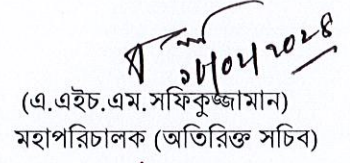 ১৮/০২/২০২৪
(এ.এইচ.এম.সফিকুজ্জামান)
মহাপরিচালক (অতিরিক্ত সচিব)